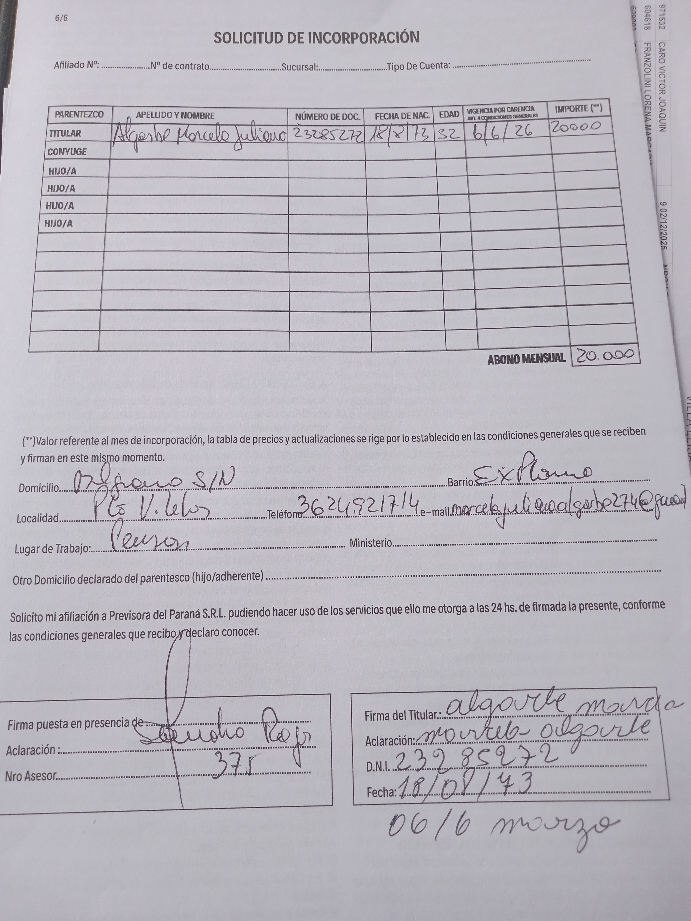 6/6
SOLICITUD DE INCORPORACIÓN
Afiliado Nº: Nº de contrato Sucursal: Tipo De Cuenta:
PARENTEZCO APELLIDO Y NOMBRE NÚMERO DE DOC. FECHA DE NAC. EDAD VIGENCIA POR CARENCIA IMPORTE (**)
TITULAR Algarbe Marcela Juliana 23285272 18/8/73 52 6/6/26 20000
CONYUGE
HIJO/A
HIJO/A
HIJO/A
HIJO/A
ABONO MENSUAL 20.000
(**)Valor referente al mes de incorporación, la tabla de precios y actualizaciones se rige por lo establecido en las condiciones generales que se reciben
y firman en este mismo momento.
Domicilio S/N Barrio
Localidad Pto Teléfono 3624921714 e-mail
Lugar de Trabajo: Ministerio
Otro Domicilio declarado del parentesco (hijo/adherente)
Solicito mi afiliación a Previsora del Paraná S.R.L. pudiendo hacer uso de los servicios que ello me otorga a las 24 hs. de firmada la presente, conforme
las condiciones generales que recibo y declaro conocer.
Firma puesta en presencia de
Aclaración :
Nro Asesor 375
Firma del Titular: algarbe
Aclaración: algarbe
D.N.I. 23285272
Fecha: 18/08/73
06/6 marzo
971532 CARO VICTOR JOAQUIN
604618 FRANZOLINI LORENA
9 02/12/2025